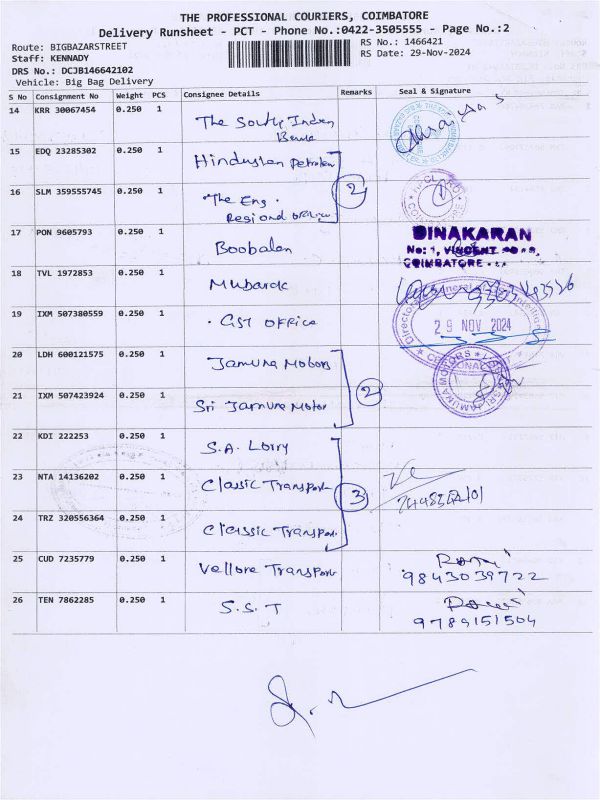 THE PROFESSIONAL COURIERS, COIMBATORE
Delivery Runsheet - PCT - Phone No.:0422-3505555 - Page No.:2
Route: BIGBAZARSTREET
RS No.: 1466421
Staff: KENNADY
RS Date: 29-Nov-2024
DRS No.: DCJB146642102
Vehicle: Big Bag Delivery
S No Consignment No Weight PCS Consignee Details Remarks Seal & Signature
14 KRR 30067454 0.250 1 The South Indian
Bank
15 EDQ 23285302 0.250 1 Hindustan Petroleum
16 SLM 359555745 0.250 1 The Eng.
Regional office
2
17 PON 9605793 0.250 1 Boobalan
DINAKARAN
No: 1, VINCENT ROAD,
COIMBATORE
18 TVL 1972853 0.250 1 Mubarak
19 IXM 507380559 0.250 1 GST Office
29 NOV 2024
20 LDH 600121575 0.250 1 Jamuna Motors
21 IXM 507423924 0.250 1 Sri Jamuna Motor
2
JAMUNA MOTORS
22 KDI 222253 0.250 1 S.A. Lorry
23 NTA 14136202 0.250 1 Classic Transport
3
24 TRZ 320556364 0.250 1 Classic Transport
25 CUD 7235779 0.250 1 Vellore Transport
9843039722
26 TEN 7862285 0.250 1 S.S.T
9789151504